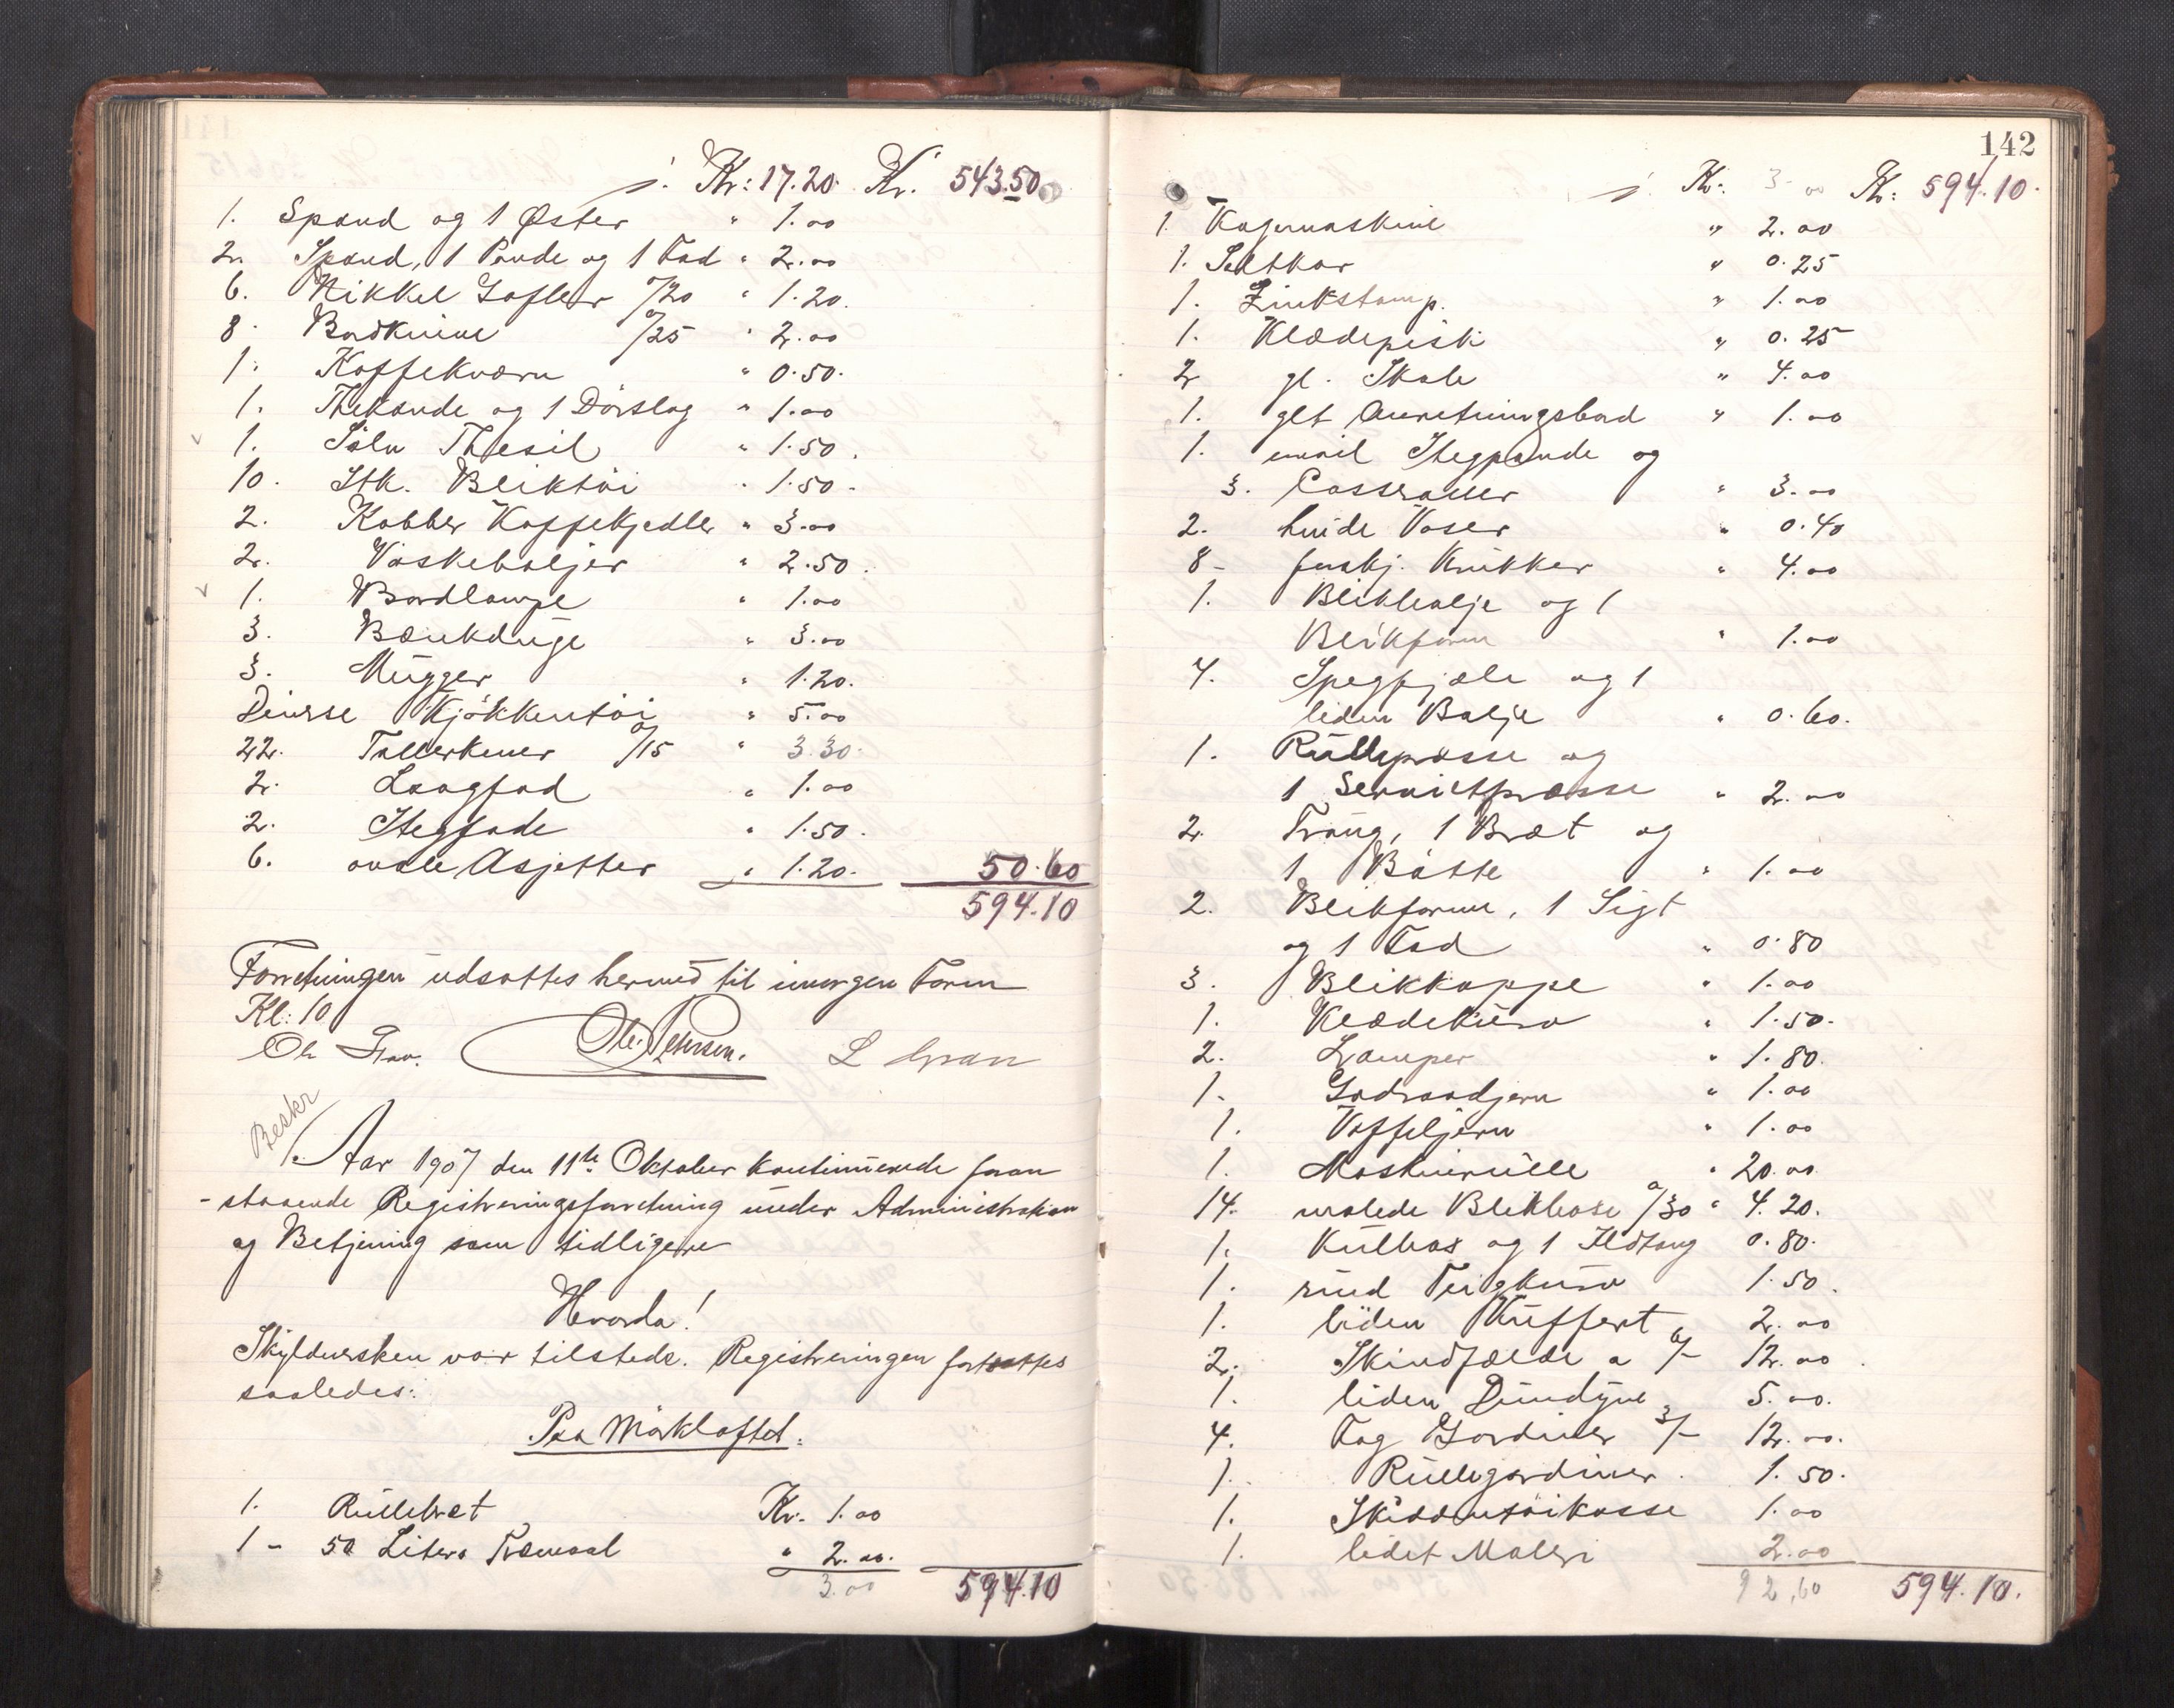 /. Kr: 17.20. Kr. 543.50
1. Spand og 1 Øster " 1.00
2. Spand, 1 Pande og 1 Fad " 2.00
6. Nikkel Gafler a/20 " 1.20.
8. Bordknive a/25 " 2.00
1. Kaffekværn " 0.50.
1. Thekande og 1 Dørslag " 1.00
1. Sølv Thesil " 1.50.
10. Stk. Bliktøi " 1.50.
2. Kobber Kaffekjedler " 3.00
2. Vaskebaljer " 2.50.
1. Bordlampe " 1.00
3. Bænkduge " 3.00
3. Mugger " 1.20.
Diverse Kjøkkentøi " 5.00
22. Tallerkener a/15 " 3.30.
2. Laagfad " 1.00
2. Stegfade " 1.50.
6. ovale Asjetter " 1.20. 50.60
594.10
Forretningen udsattes hermed til imorgen Form
Kl: 10
Ole Petersen. L Gran
Beskr
Aar 1907 den 11te Oktober kontinuerede foran
-staaende Registreringsforretning under Administration
og Betjening som tidligere
Hvorda!
Skyldnersken var tilstede. Registreringen fortsattes
saaledes:
Paa Mørkloftet.
1. Rullebræt Kr. 1.00
1 - 50 Liters Træmaal " 2.00.
3.00 594.10
142
/. Kr: 3.00 Kr: 594.10.
1. Kagemaskine " 2.00
1. Saltkar " 0.25
1. Zinkstamp. " 1.00
1. Klædepisk " 0.25
2 gl. Skabe " 4.00
1. glt Anretningsbord " 1.00
1. email Stegpande og
3. Casseroller " 3.00
2. hvide Vaser " 0.40
8 - forskj. Krukker " 4.00
1. Blikbalje og 1
Blikform " 1.00
4. Spegfjæle og 1
liden Balje " 0.60.
1. Rullepresse og
1 Servietpresse " 2.00
2. Traug, 1 Bræt og
1 Bøtte " 1.00
2. Blikforme, 1 Sigt
og 1 Fad " 0.80
3. Blikkoppe " 1.00
1. Klædekurv " 1.50.
2. Lamper " 1.80.
1. Godraadjern " 1.00
1. Vaffeljern " 1.00
1. Maskinrulle " 20.00
14. malede Blikbokse a/30 " 4.20.
1. Kulboks og 1 Ildtang 0.80.
1. rund Tøigkurv 1.50.
1. liden Kuffert 2.00
2. Skindfælde a 6/- 12.00.
1. liden Dundyne 5.00.
4. Fag Gardiner 3/- 12.00.
1. Rullegardiner. 1.50.
1. Skiddentøikasse 1.00
1. lidet Maleri 2.00
92,60 594.10.